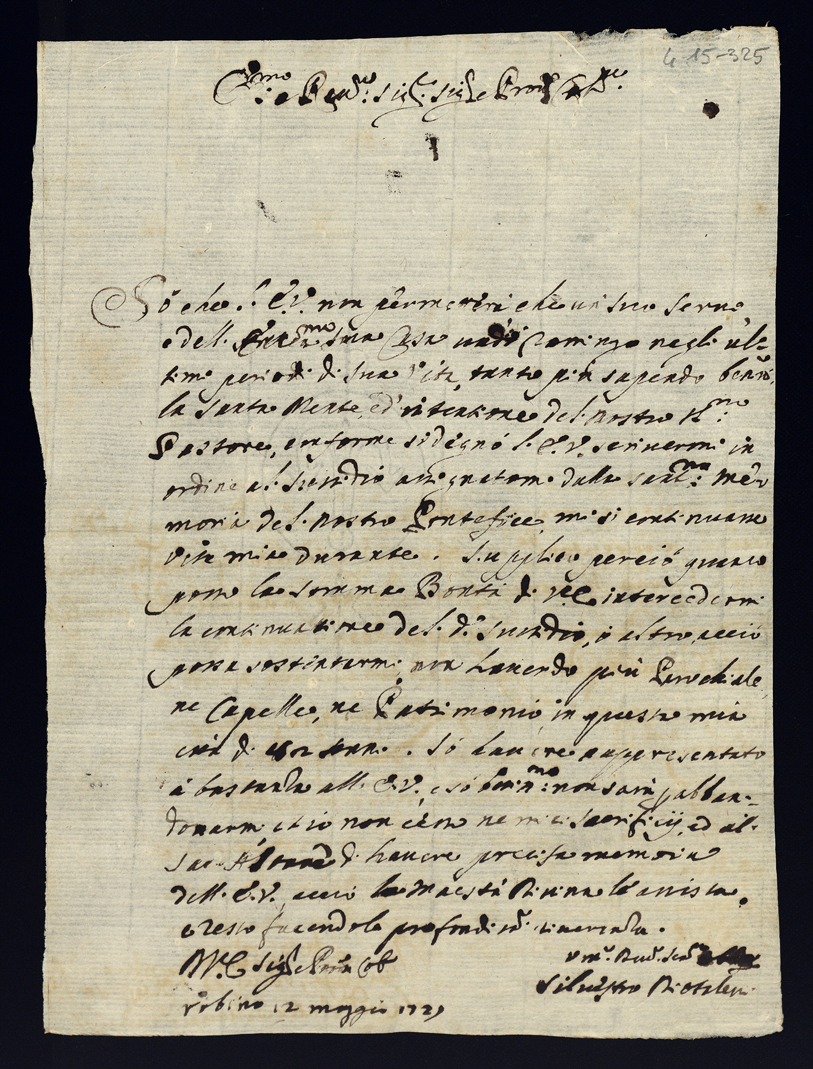 4 15-325
E.mo e Rev.mo Sig.r Sig.r e Pron
Sò che l'E.V. non permetterà che un suo servo
e dell' sua Casa vadi ramingo negli ul-
timi periodi di sua vita, tanto più sapendo
la santa Mente, ed' intentione del nostro
Pastore, conforme si degnò l'E.V. scrivermi in
ordine al sussidio assegnatomi dalla me-
moria del nostro Pontefice, mi si continuasse
vita mia durante. Supplico perciò quanto
posso la somma Bontà di V.E. intercedermi
la continuatione del d.o sussidio, ò altro, acciò
possa sostentarmi, non havendo più Parochiale,
ne Capelle, ne Patrimonio, in questa mia
età di anni. Sò havere rappresentato
à bastanza all' E.V., e sò non sarà p abban-
donarmi, et io non cesso ne miei sacrificij, ed al
sac. Altare di havere precisa memoria
dell' E.V., acciò la Maestà Divina l'assista,
e resto facendole profondiss. riverenza.
Di V.E. Sig.r e Pron
Urbino 12 maggio 1721
Silvestro